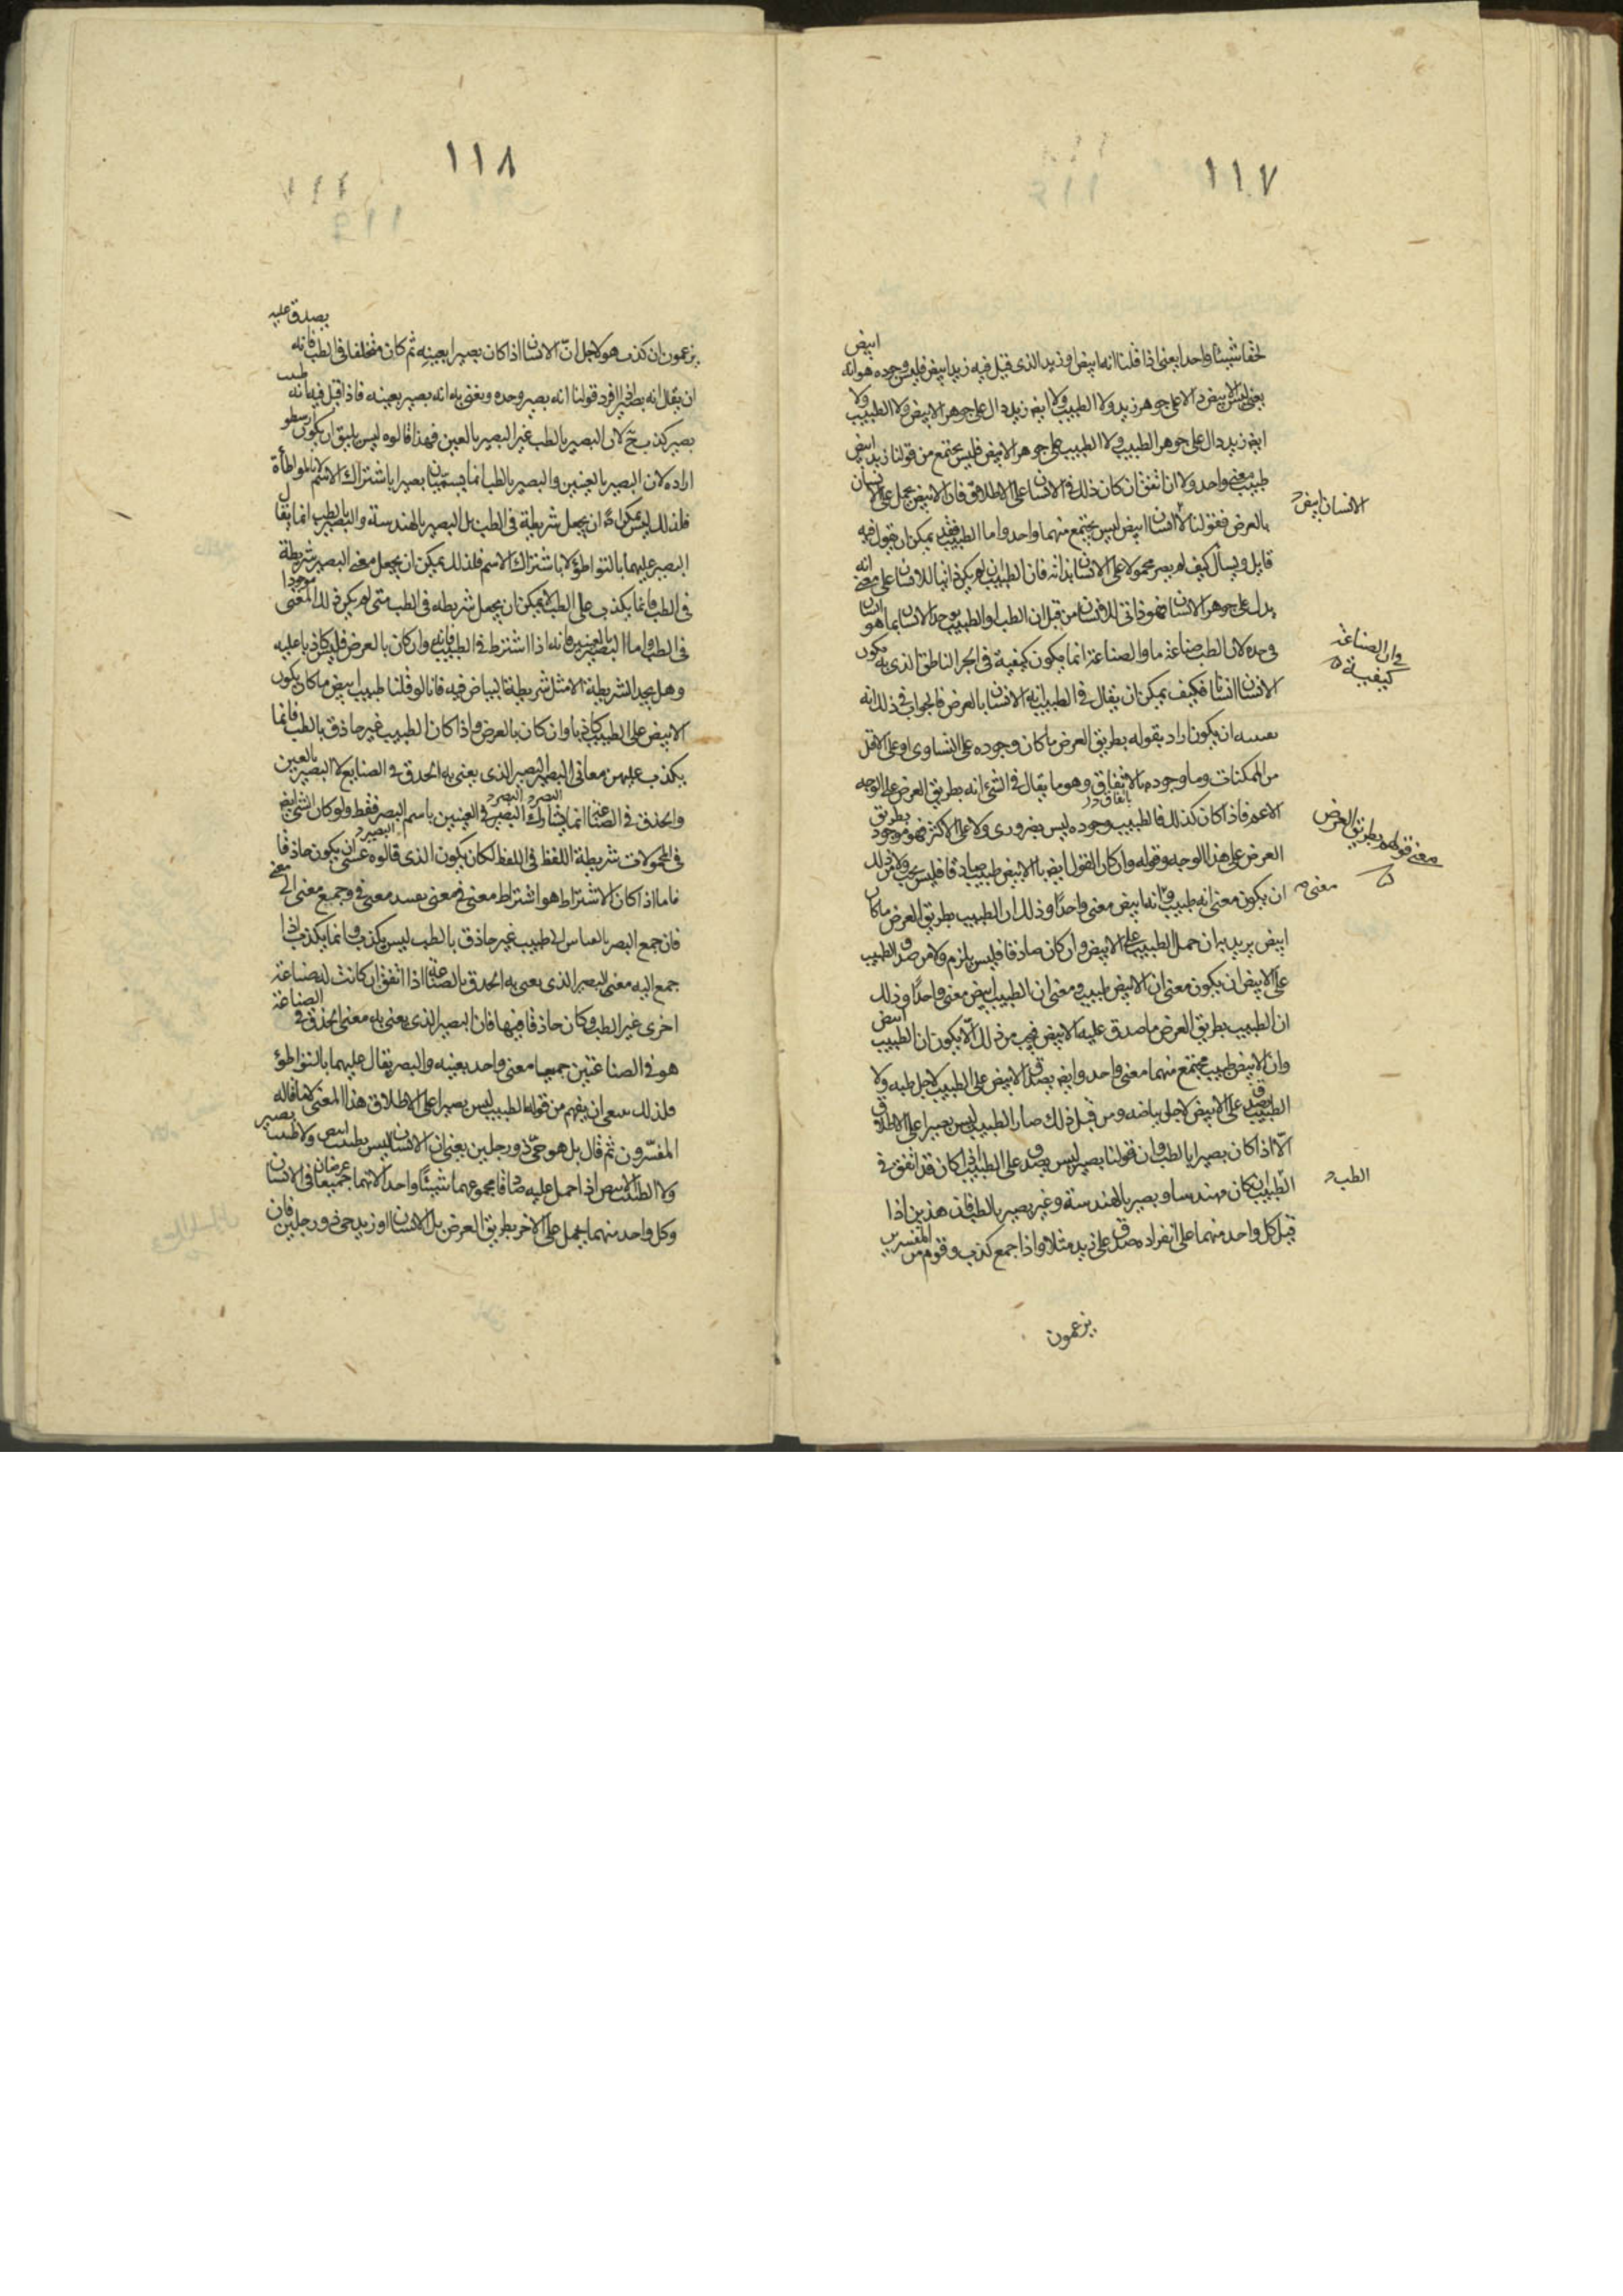 ١١٧
ابيض
لحقا شيئا واحدا يعنى اذا قلنا انه ابيض او زيد الذى قيل فيه زيد ابيض فليس وجوده هو انه
يعنى ليس الابيض دالا على جوهر زيد ولا الطبيب ولا ايضا زيد دال على جوهر الابيض ولا الطبيب ولا
ايضا زيد دال على جوهر الطبيب ولا الطبيب على جوهر الابيض فليس يجتمع من قولنا زيد ابيض
طبيب معنى واحد ولا ان اتفق ان كان ذلك فى الانسان على الاطلاق فان الابيض يحمل على الانسان
بالعرض فقولنا الانسان ابيض ليس يجتمع منهما واحد واما الطبيب فقد يمكن ان يقول فيه
الانسان ابيض
قايل ويسأل كيف لم يصر محمولا على الانسان بذاته فان الطبيب ان لم يكن ذاتيا للانسان على معنى انه
يدل على جوهر الانسان فهو ذاتى للانسان من قبل ان الطب او الطبيب يوجد للانسان بما هو انسان
وحده لان الطب صناعة ما والصناعة انما يكون كيفية فى الجزء الناطق الذى به يكون
وان الصناعة
كيفية
الانسان انسانا فكيف يمكن ان يقال فى الطبيب انه للانسان بالعرض فالجواب فى ذلك انه
ان يكون اراد بقوله بطريق العرض ما كان وجوده على التساوى او على الاقل
من الممكنات وما وجوده بالاتفاق وهو ما يقال فى الشئ انه بطريق العرض على الوجه
الاعم فاذا كان كذلك فالطبيب وجوده ليس بضرورى ولا على الاكثر فهو موجود بطريق
معنى قوله بطريق العرض
العرض على هذا الوجه وقوله وان كان القول ايضا بان الابيض طبيب صادقا فليس يجب ولا من ذلك
ان يكون معنى انه طبيب وانه ابيض معنى واحدا وذلك ان الطبيب بطريق العرض ما كان
معنى
ابيض يريد به ان حمل الطبيب على الابيض وان كان صادقا فليس يلزم ولا من صدق الطبيب
على الابيض ان يكون معنى ان الابيض طبيب ومعنى ان الطبيب ابيض معنى واحدا وذلك
ان الطبيب بطريق العرض ما صدق عليه الابيض فيجب من ذلك الا يكون ان الطبيب ابيض
وان الابيض طبيب يجتمع منهما معنى واحد وايضا يصدق الابيض على الطبيب لا من اجل طبه ولا
الطبيب يصدق على الابيض لاجل بياضه ومن قبل ذلك صار الطبيب ليس بصيرا على الاطلاق
الا اذا كان بصيرا بالطب وان قولنا بصير ليس يصدق على الطبيب اذا كان قد اتفق فى
الطبيب ان كان مهندسا وبصيرا بالهندسة وغير بصير بالطب فان هذين اذا
الطب
قيل كل واحد منهما على انفراده صدق على زيد مثلا واذا جمع كذب وقوم من المفسرين
يزعمون
١١٨
يصدق عليه
يزعمون ان كذب هو لاجل ان الانسان اذا كان بصيرا بعينه ثم كان متخلفا فى الطب فانه
ان يقال انه بصير اذا افرد قولنا انه بصير وحده ويعنى به انه بصير بعينه فاذا قيل فيه انه طبيب
بصير كذب لان البصير بالطب غير البصير بالعين فهذا قالوه ليس يليق ان يكون ارسطو
اراده لان البصير بالعينين والبصير بالطب انما يسميان بصيرا باشتراك الاسم لا بالمواطأة
فلذلك ليس يمكن ان يجعل شريطة فى الطب بل البصير بالهندسة والبصير بالطب انما يقال
البصير عليهما بالتواطؤ لا باشتراك الاسم فلذلك يمكن ان يجعل معنى البصير شريطة
فى الطب فانما يكذب على الطب لانه يمكن ان يجعل شريطة فى الطب متى لم يكن ذلك المعنى موجودا
فى الطب واما البصير بالعينين فانه اذا اشترط فى الطبيب فانه وان كان بالعرض فليس كاذبا عليه
وهل يجد الشريطة الا مثل شريطة البياض فيه فانا لو قلنا طبيب ابيض ما كان يكون
الابيض على الطبيب كاذبا وان كان بالعرض واذا كان الطبيب غير حاذق بالطب فانما
يكذب عليه من معانى البصير البصير الذى يعنى به الحذق فى الصنايع لا البصير بالعين
والحذق فى الصناعة انما يشارك البصير فى العينين باسم البصر فقط ولو كان الشئ ايضا
فى المحمولات شريطة اللفظ فى اللفظ لكان يكون الذى قالوه عسى ان يكون حاذقا
فاما اذا كان الاشتراط هو اشتراط معنى فى معنى وجميع معنى الى معنى
فان جمع البصر الى طبيب غير حاذق بالطب ليس يكذب وانما يكذب اذا
جمع اليه معنى البصير الذى يعنى به الحذق بالصناعة اذا اتفق ان كانت له صناعة
اخرى غير الطب وكان حاذقا فيها فان البصير الذى يعنى به معنى الحذق فى الصناعة
هو فى الصناعتين جميعا معنى واحد بعينه والبصر يقال عليهما بالتواطؤ
فلذلك ان يفهم من قوله الطبيب ليس بصيرا على الاطلاق هذا المعنى لا ما قاله
المفسرون ثم قال بل هو حى ذو رجلين يعنى ان الانسان ليس بطبيب ابيض ولا طبيب بصير
ولا الطبيب الابيض اذا حمل عليه صادقا مجموعهما شيئا واحدا لانهما جميعا عرضان فى الانسان
وكل واحد منهما يحمل على الاخر بطريق العرض بل الانسان او زيد حى ذو رجلين فان